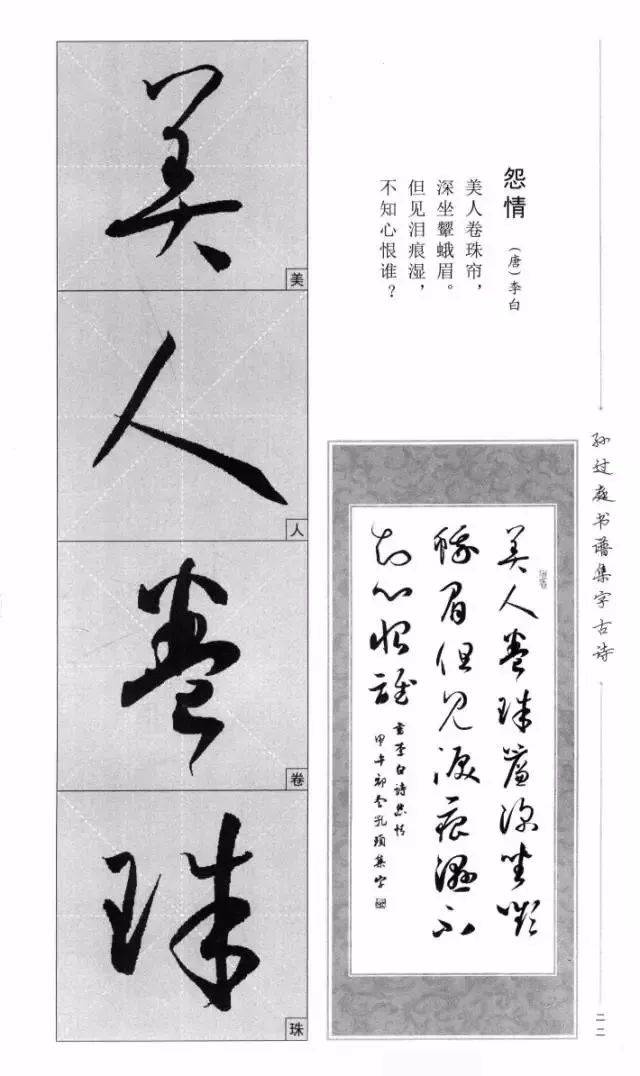 孙过庭书谱集字古诗
二二
怨情
（唐）李白
美人卷珠帘，
深坐颦蛾眉。
但见泪痕湿，
不知心恨谁？
美人卷珠簾深坐嚬
蛾眉但見淚痕濕不
知心恨誰
書李白詩怨情
甲午初冬孔集字
美
美
人
人
卷
卷
珠
珠